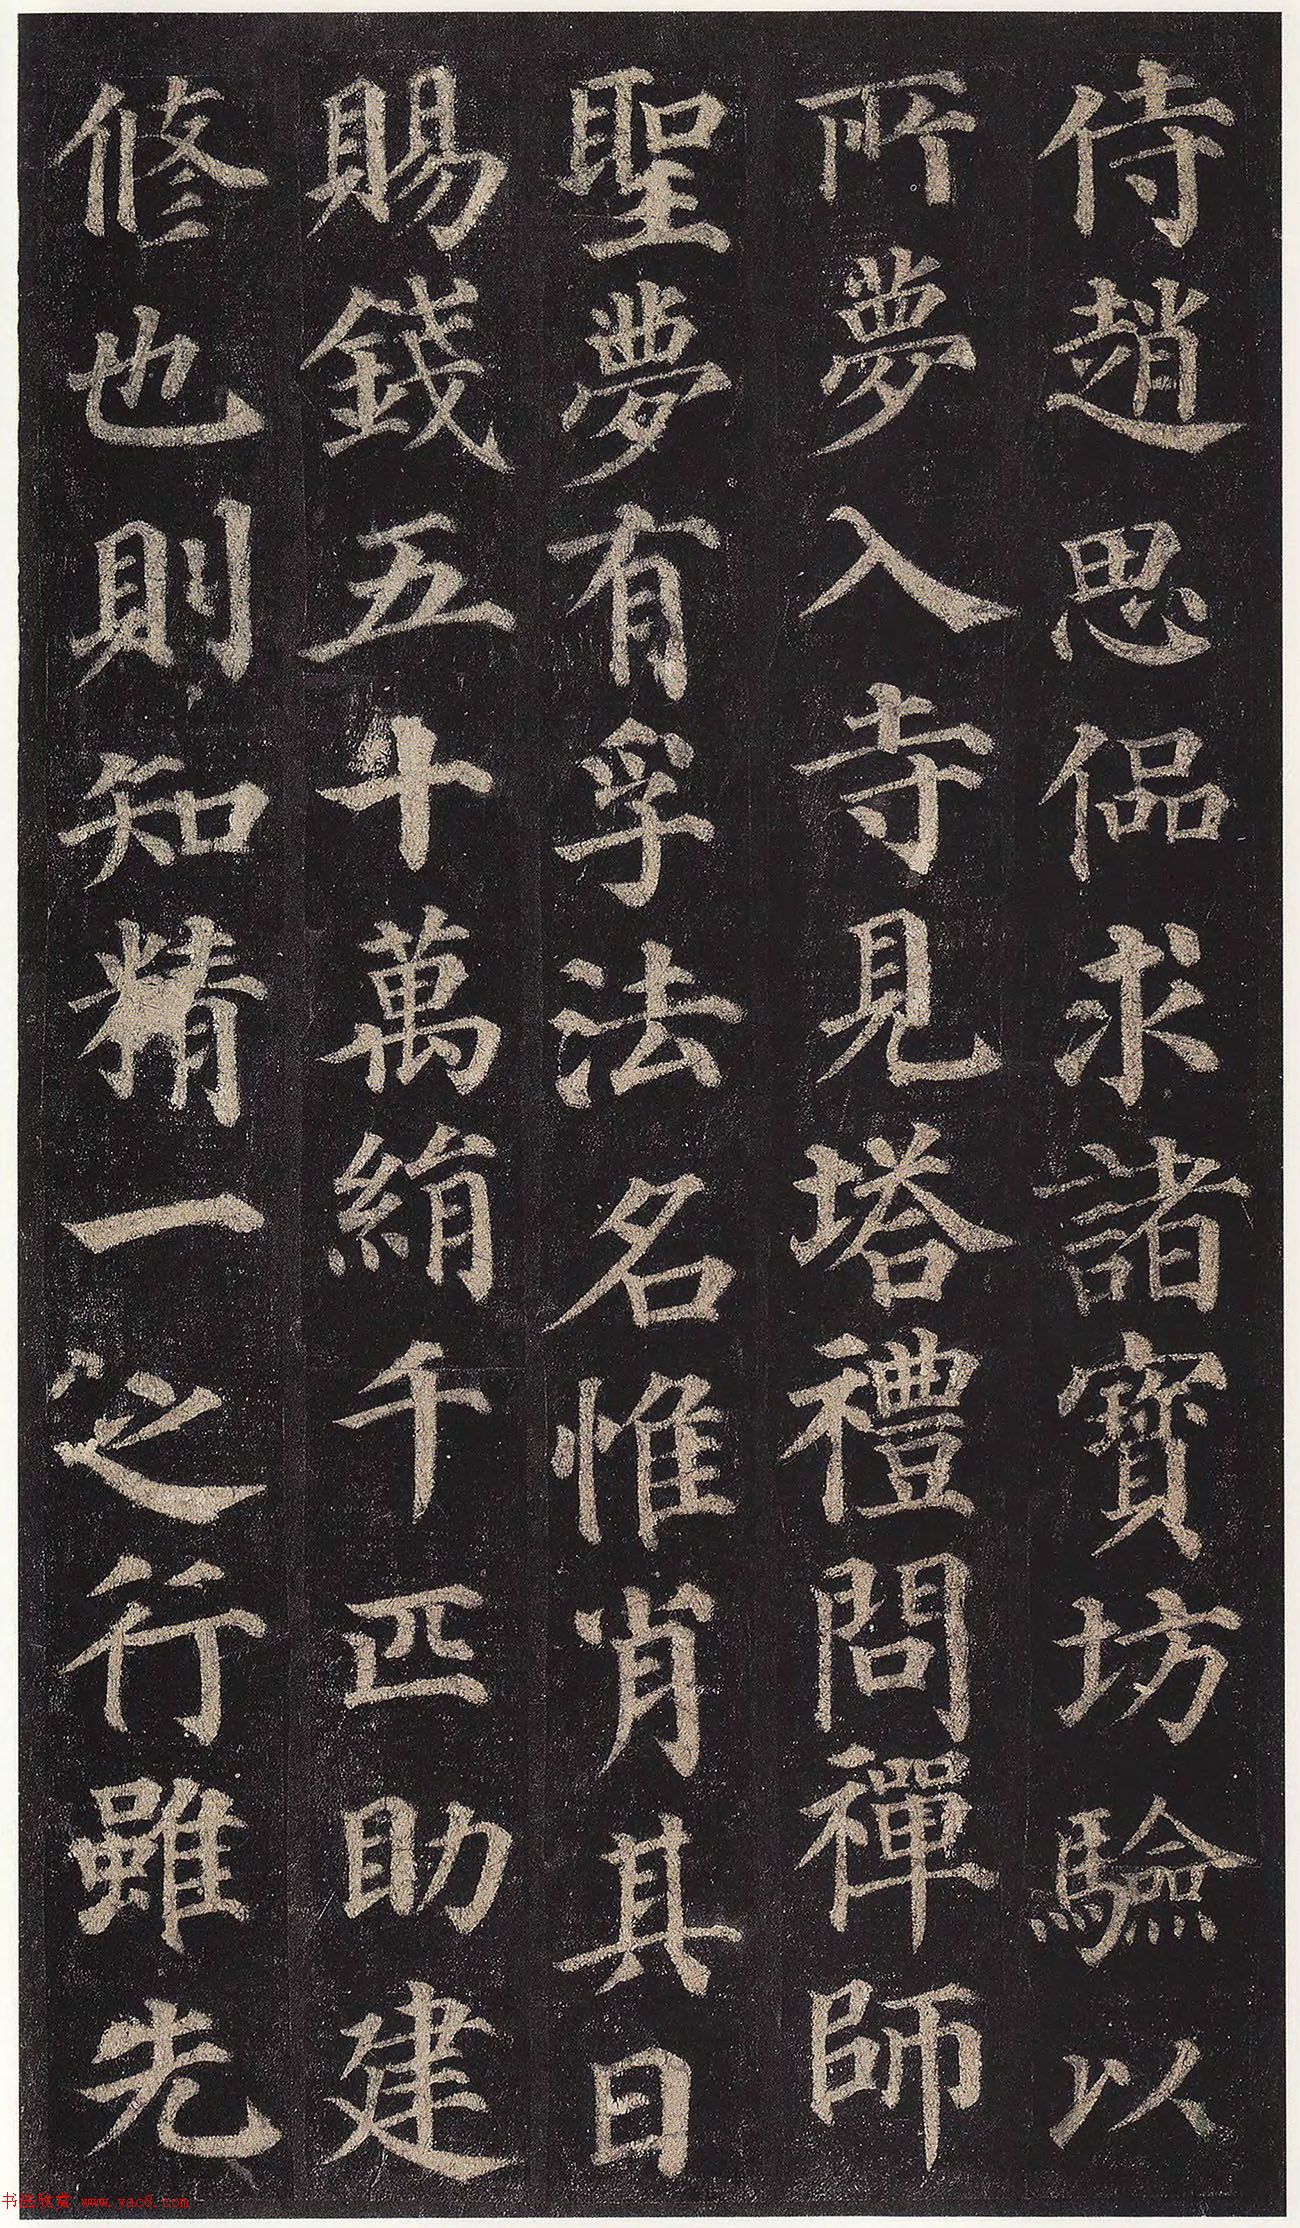 侍趙思偘求諸寳坊驗以
所夢入寺見塔禮問禪師
聖夢有孚法名惟肖其日
賜錢五十萬絹千匹助建
修也則知精一之行雖先
书法欣赏 www.yac8.com